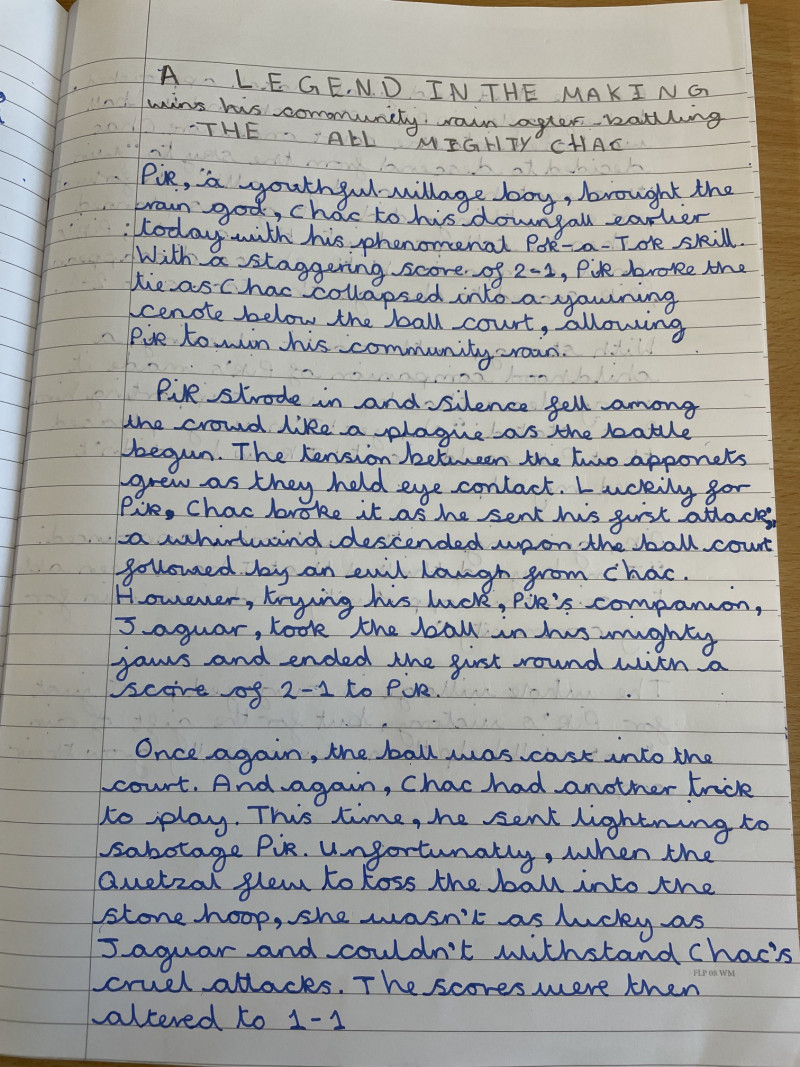 A LEGEND IN THE MAKING
wins his community rain after battling
THE All MIGHTY CHAC
Pik, a youthful village boy, brought the
rain god, Chac to his downfall earlier
today with his phenomenal Pok-a-Tok skill.
With a staggering score of 2-1, Pik broke the
tie as Chac collapsed into a yawning
cenote below the ball court, allowing
Pik to win his community rain.
Pik strode in and silence fell among
the crowd like a plague as the battle
begun. The tension between the two apponets
grew as they held eye contact. Luckily for
Pik, Chac broke it as he sent his first attack;
a whirlwind descended upon the ball court
followed by an evil laugh from Chac.
However, trying his luck, Pik's companion,
Jaguar, took the ball in his mighty
jaws and ended the first round with a
score of 2-1 to Pik.
Once again, the ball was cast into the
court. And again, Chac had another trick
to play. This time, he sent lightning to
sabotage Pik. Unfortunatly, when the
Quetzal flew to toss the ball into the
stone hoop, she wasn't as lucky as
Jaguar and couldn't withstand Chac's
FLP 08 WM
cruel attacks. The scores were then
altered to 1-1